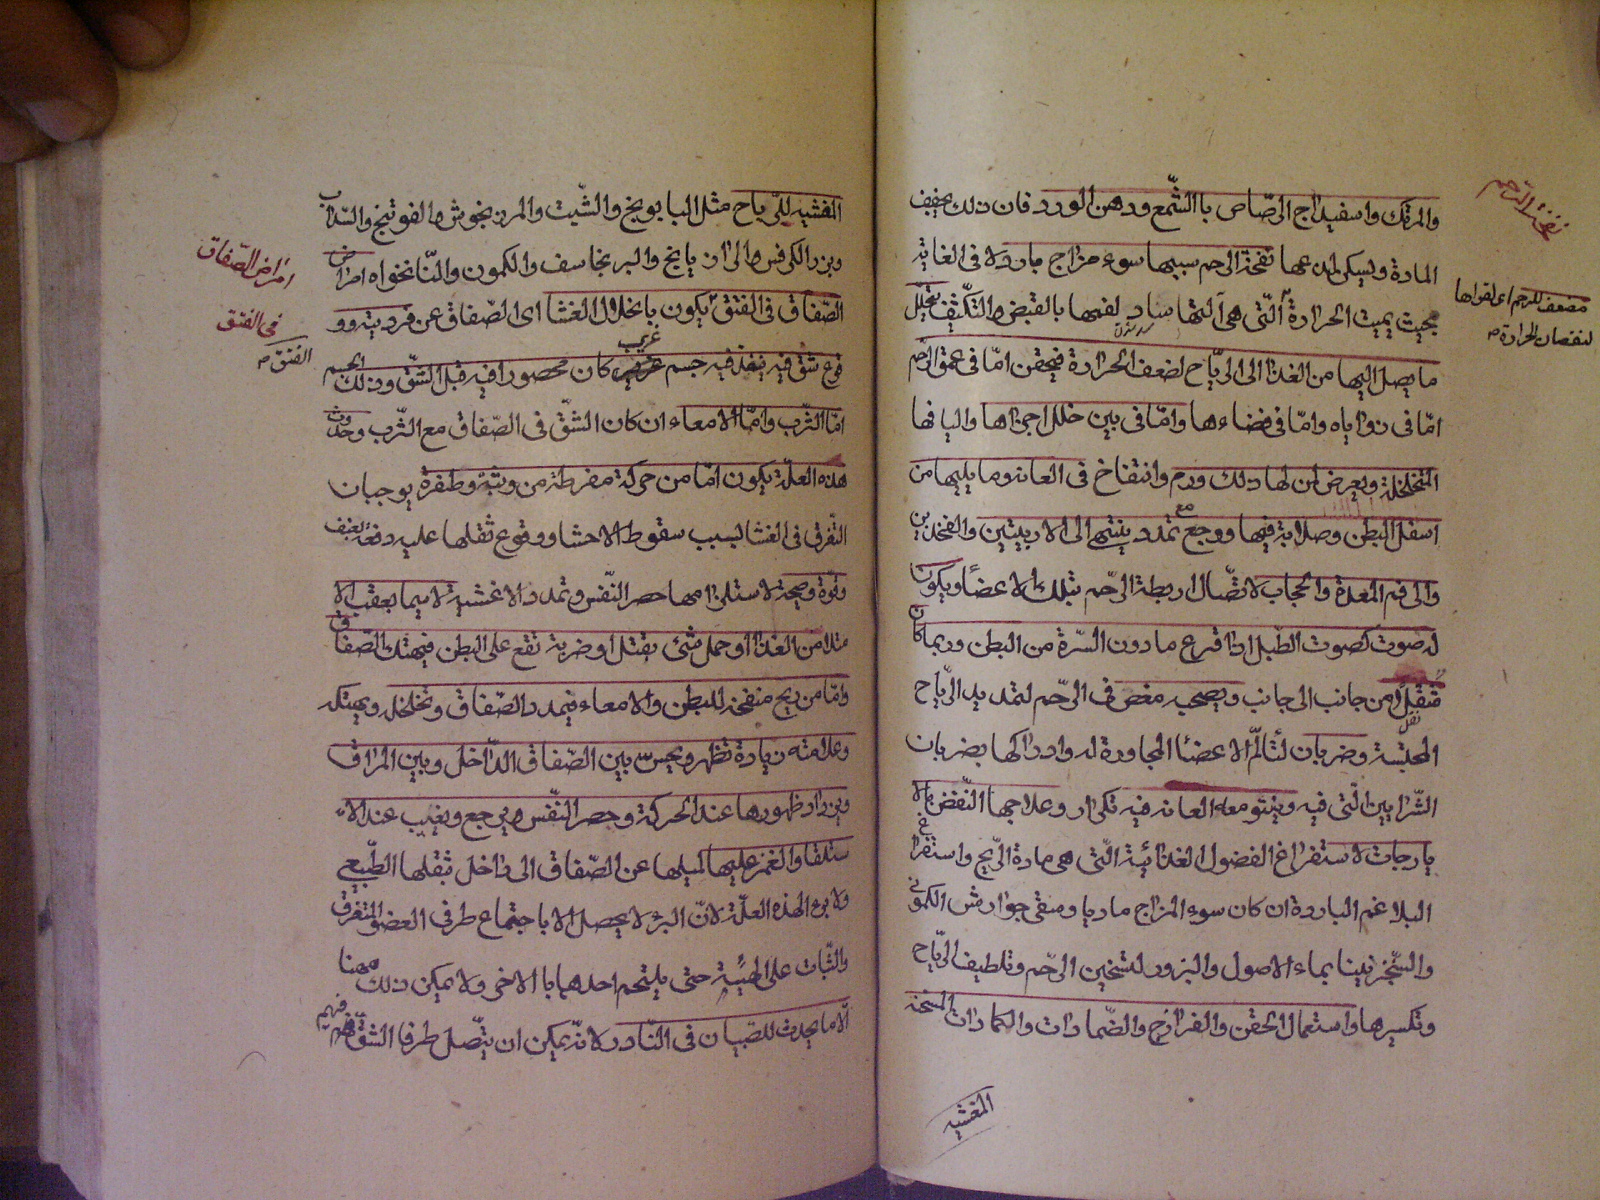 نفخة الرحم
والمرتك واسفيداج الرصاص بالشمع ودهن الورد فان ذلك يجفف
المادة ويسكن لذعها نفخة الرحم سببها سوء مزاج باردة فى الغاية
مضعف للرحم اى لقواها
لنقصان الحرارة
بحيث يميت الحرارة التى هى آلتها ساد لفمها بالقبض والتكثيف تحلل
ما يصل اليها من الغذا الى الرياح لضعف الحرارة فيحقن امّا فى عمق الرحم
امّا فى زواياه وامّا فى فضاءها وامّا فى بين خلل اجزاها واليافها
المتخلخلة ويعرض لها ذلك ورم وانتفاخ فى العانة وما يليها من
اسفل البطن وصلابة فيها ووجع مع تمدد ينتهى الى الاربيتين والفخذين
والى فم المعدة والحجاب لاتّصال اربطة الرحم بتلك الاعضا ويكون
له صوت كصوت الطبل اذا قرع مادون السرّة من البطن وربما كان
تنقل من جانب الى جانب ويصحبه مغص فى الرحم لتمديد الرياح
المحتبسة وضربان لتألّم الاعضا المجاورة له وادراكها بضربان
الشرايين التى فيه وينتو معه العانة وعلاجها النفض بالا
يارجات لاستفراغ الفضول الغذائية التى هى مادة الريح واستفراغ
البلاغم الباردة ان كان سوء المزاج ماديا ومنقى جوارش الكمونى
والسجزنيا بماء الاصول والبزور لتسخين الرحم وتلطيف الرياح
وتكسيرها واستعمال الحقن والفرازج والضمادات والكمادات المسخنة
المفشيه
المفشيه للرياح مثل البابونج والشبت والمرزنجوش والفوتنج والسداب
وبزر الكرفس والرازيانج والبرنجاسف والكمون والنانخواه امراض
امراض الصفاق
الصفاق فى الفتق يكون بانحلال الغشا اى الصفاق عن فرديته وو
فى الفتق
الفتق
قوع شق فيه ينفذ فيه جسم غريب كان محصورا فيه قبل الشق وذلك الجسم
امّا الثرب وامّا الامعاء ان كان الشق فى الصفاق مع الثرب وحدوث
هذه العلة يكون امّا من حركة مفرطة من وثبة وطفرة يوجبان
التفرق فى الغشا بسبب سقوط الاحشا ووقوع ثقلها عليه دفعة بعنف
وقوة وصيحة لاستلزامها حصر النفس وتمدد الاغشية لا سيما بعقب الا
متلا من الغذا او حمل شئ يقتل او ضربة تقع على البطن فيهتك الصفاق
وامّا من ريح منفخة للبطن والامعاء فيمدد الصفاق وتخلخله ويهتكه
وعلامته زيادة تظهر ويحس بين الصفاق الداخل وبين المراق
ويزداد ظهورها عند الحركة وحصر النفس ويرجع ويغيب عند الا
ستلقا والغمز عليها لميلها عن الصفاق الى داخل بثقلها الطبيعى
ولا برء لهذه العلة لانّ البرء لا يحصل الا باجتماع طرفى العضو المتفرق
والثبات على الهيئة حتى يلتحم احدهما بالاخر ولا يمكن ذلك ههنا
الّا ما يحدث للصبيان فى النادر لانه يمكن ان يتّصل طرفا الشق فيهم